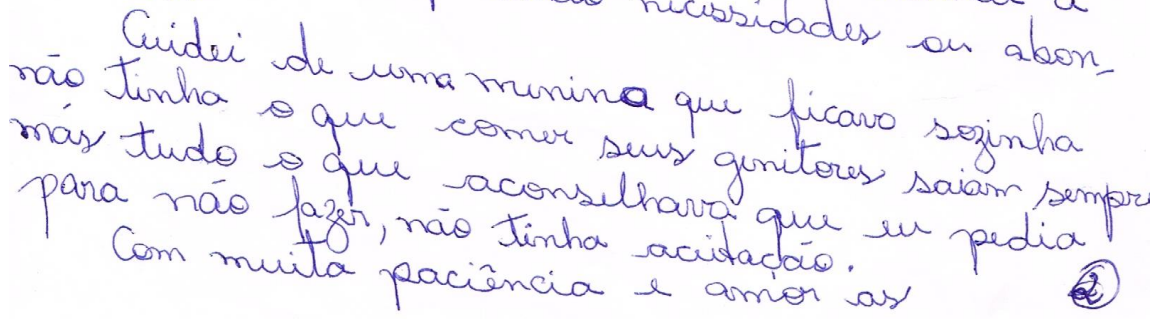 necessidades ou abon-
Cuidei de uma menina que ficava sozinha
não tinha o que comer seus genitores saiam sempre
más tudo o que aconselhava que eu pedia
para não fazer, não tinha aceitação.
Com muita paciência e amor as
2